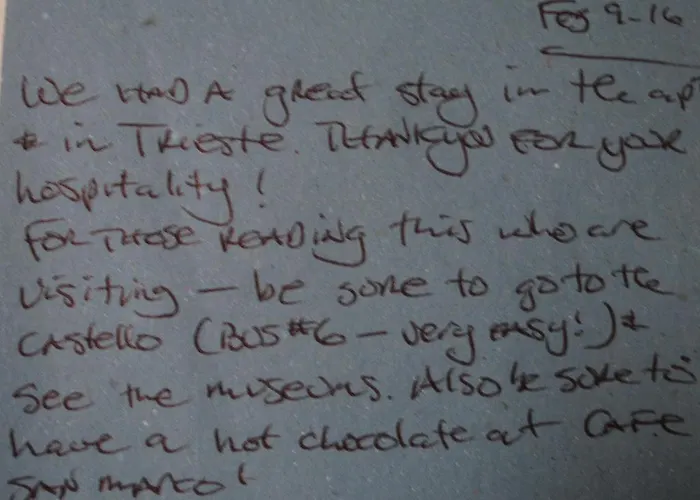 Feb 9-16
We HAD A great stay in the ap
t in Trieste. THANKyou FOR your
hospitality!
FOR THOSE READing this who are
visiting - be sure to go to the
CAStello (BUS #6 - very easy!) +
See the museums. Also be sure to
have a hot chocolate at CAFE
SAN MARCO!